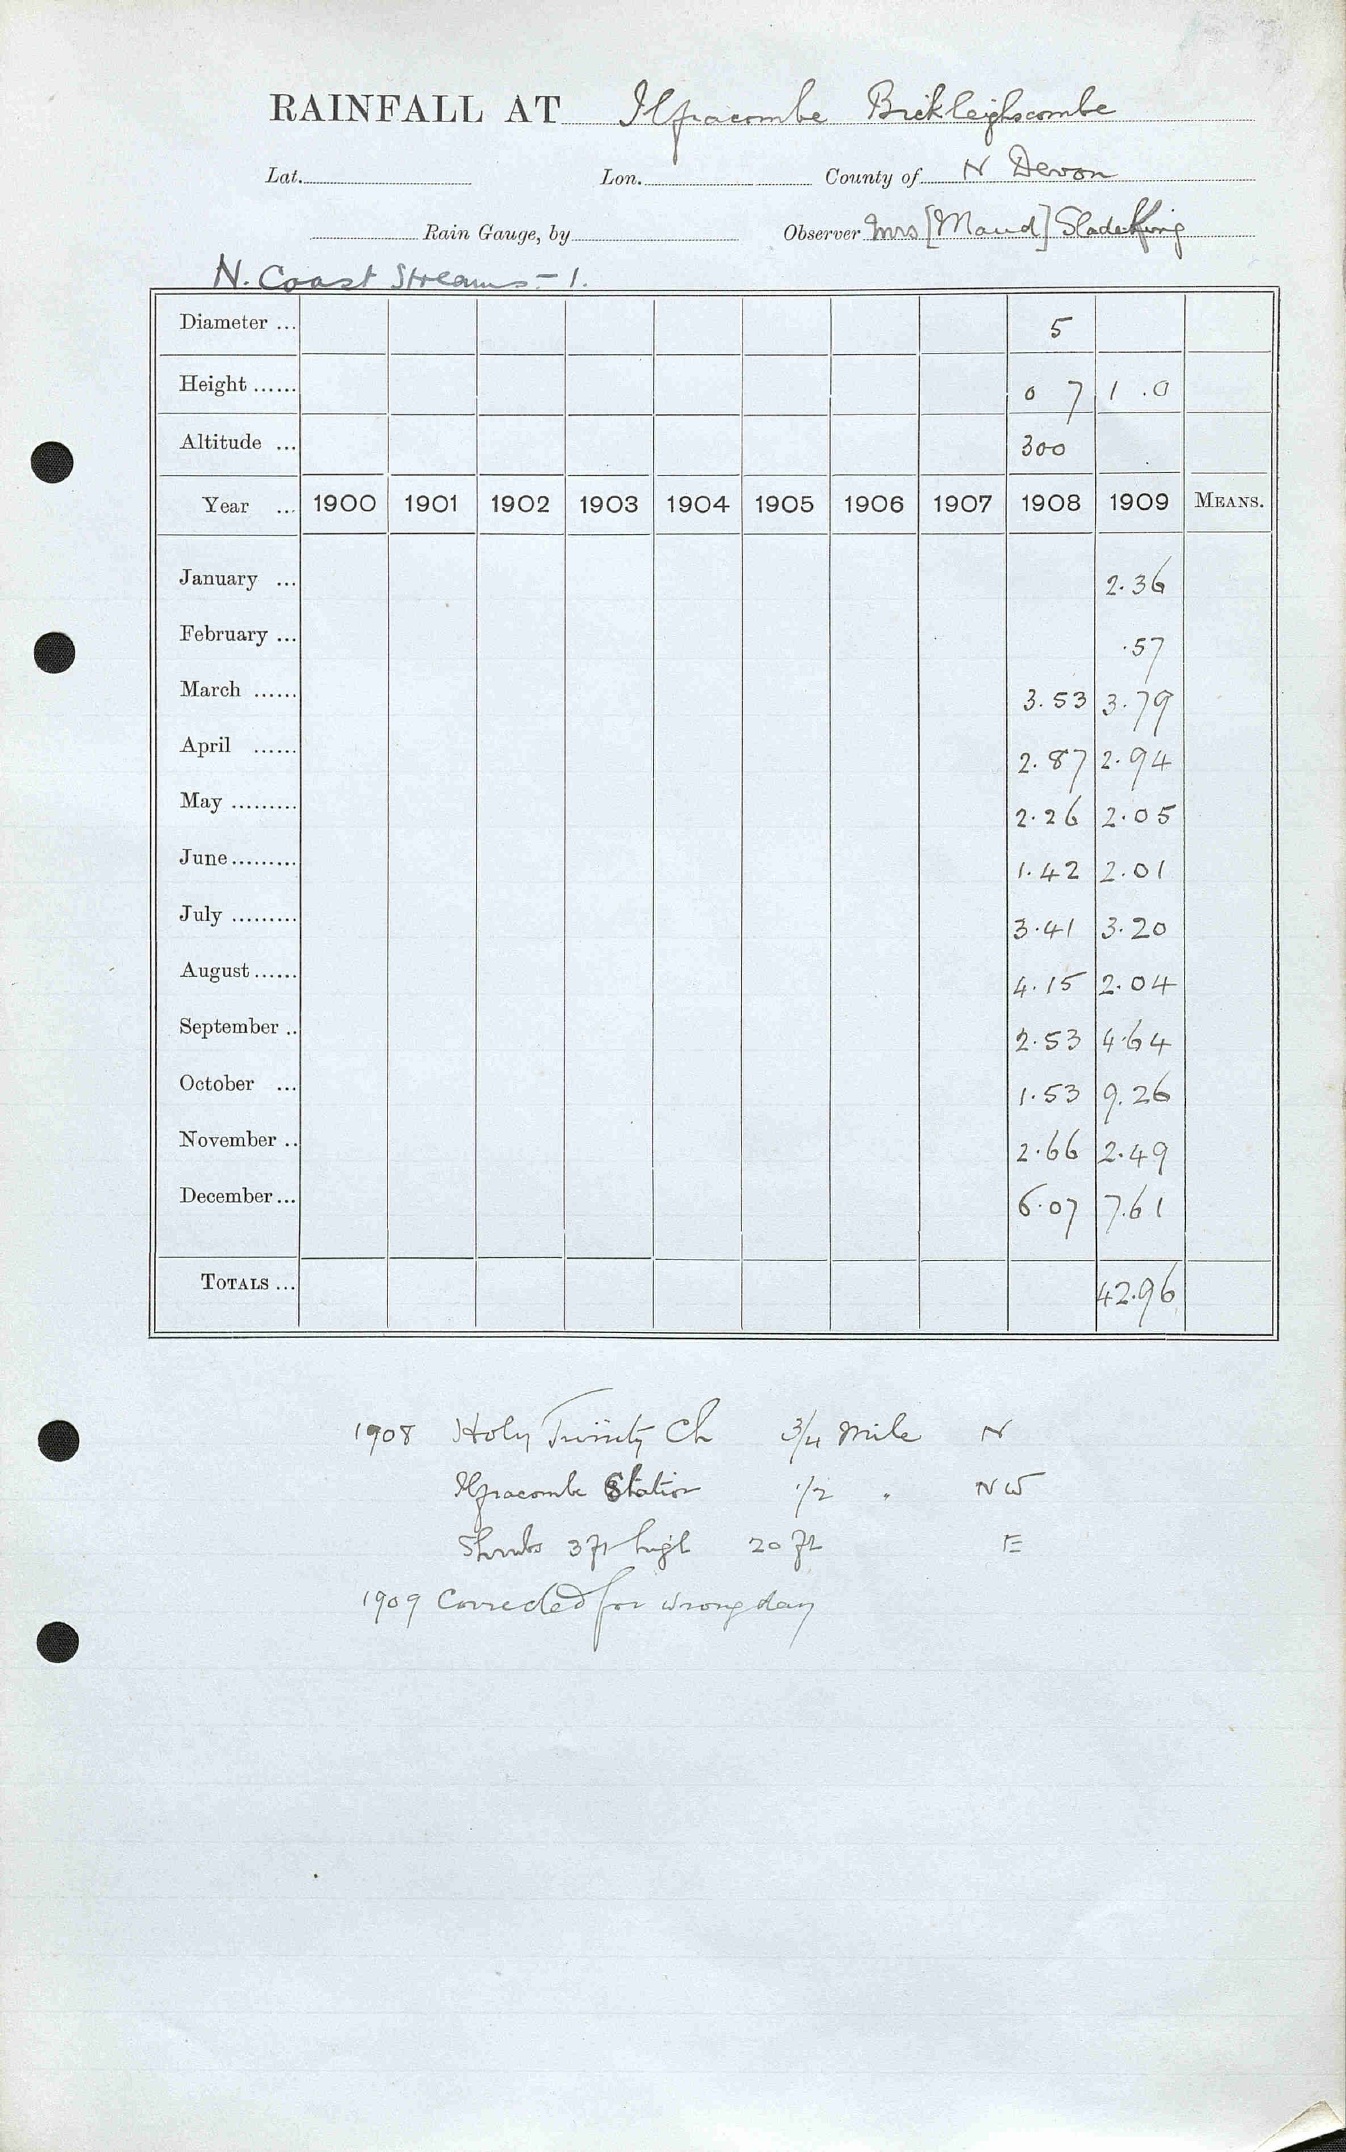 RAINFALL AT Ilfracombe Bickleighscombe
Lat. Lon. County of N Devon
Rain Gauge, by Observer Mrs [Maud] Slade King
N. Coast Streams - 1.
Diameter ... 5
Height ...... 0 7 1 .0
Altitude ... 300
Year ... 1900 1901 1902 1903 1904 1905 1906 1907 1908 1909 MEANS.
January ... 2.36
February ... .57
March ...... 3.53 3.79
April ...... 2.87 2.94
May ......... 2.26 2.05
June ......... 1.42 2.01
July ......... 3.41 3.20
August ...... 4.15 2.04
September .. 2.53 4.64
October ... 1.53 9.26
November .. 2.66 2.49
December ... 6.07 7.61
TOTALS ... 42.96
1908 Holy Trinity Ch 3/4 mile N
Ilfracombe Station 1/2 " NW
Shrubs 3 ft high 20 ft E
1909 Corrected for wrong day